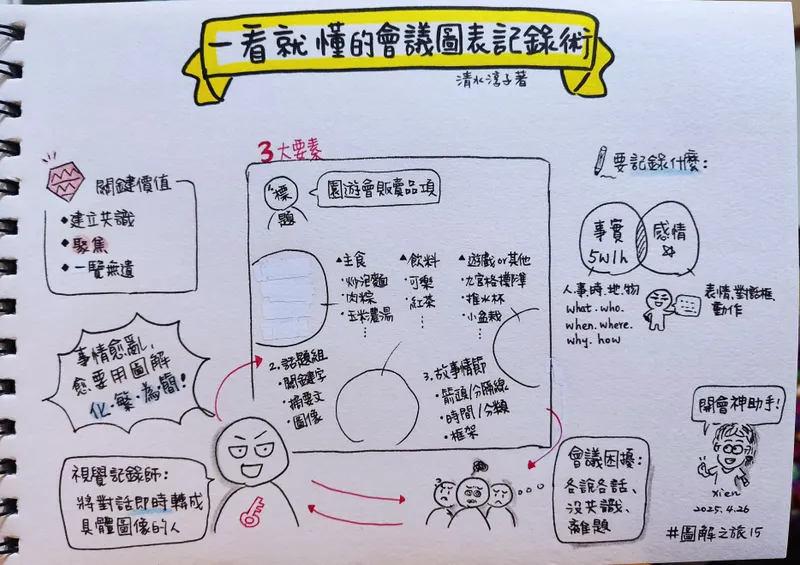 一看就懂的會議圖表記錄術
清水淳子著
關鍵價值
◆建立共識
◆聚焦
◆一覽無遺
3大要素
標
題
園遊會販賣品項
▲主食
・炒泡麵
・肉粽
・玉米濃湯
⋮
▲飲料
・可樂
・紅茶
⋮
▲遊戲or其他
・九宮格擲球
・推水杯
・小盆栽
⋮
2.話題組
・關鍵字
・摘要文
・圖像
3.故事情節
・箭頭/分隔線
・時間/分類
・框架
要記錄什麼:
事實
5W1h
感情
人.事.時.地.物
what.who.
when.where.
why.how
表情.對話框.
動作
事情愈亂,
愈要用圖解
化.繁.為.簡!
視覺記錄師:
將對話即時轉成
具體圖像的人
會議困擾:
各說各話、
沒共識、
離題
開會神助手!
xien
2025.4.26
#圖解之旅15